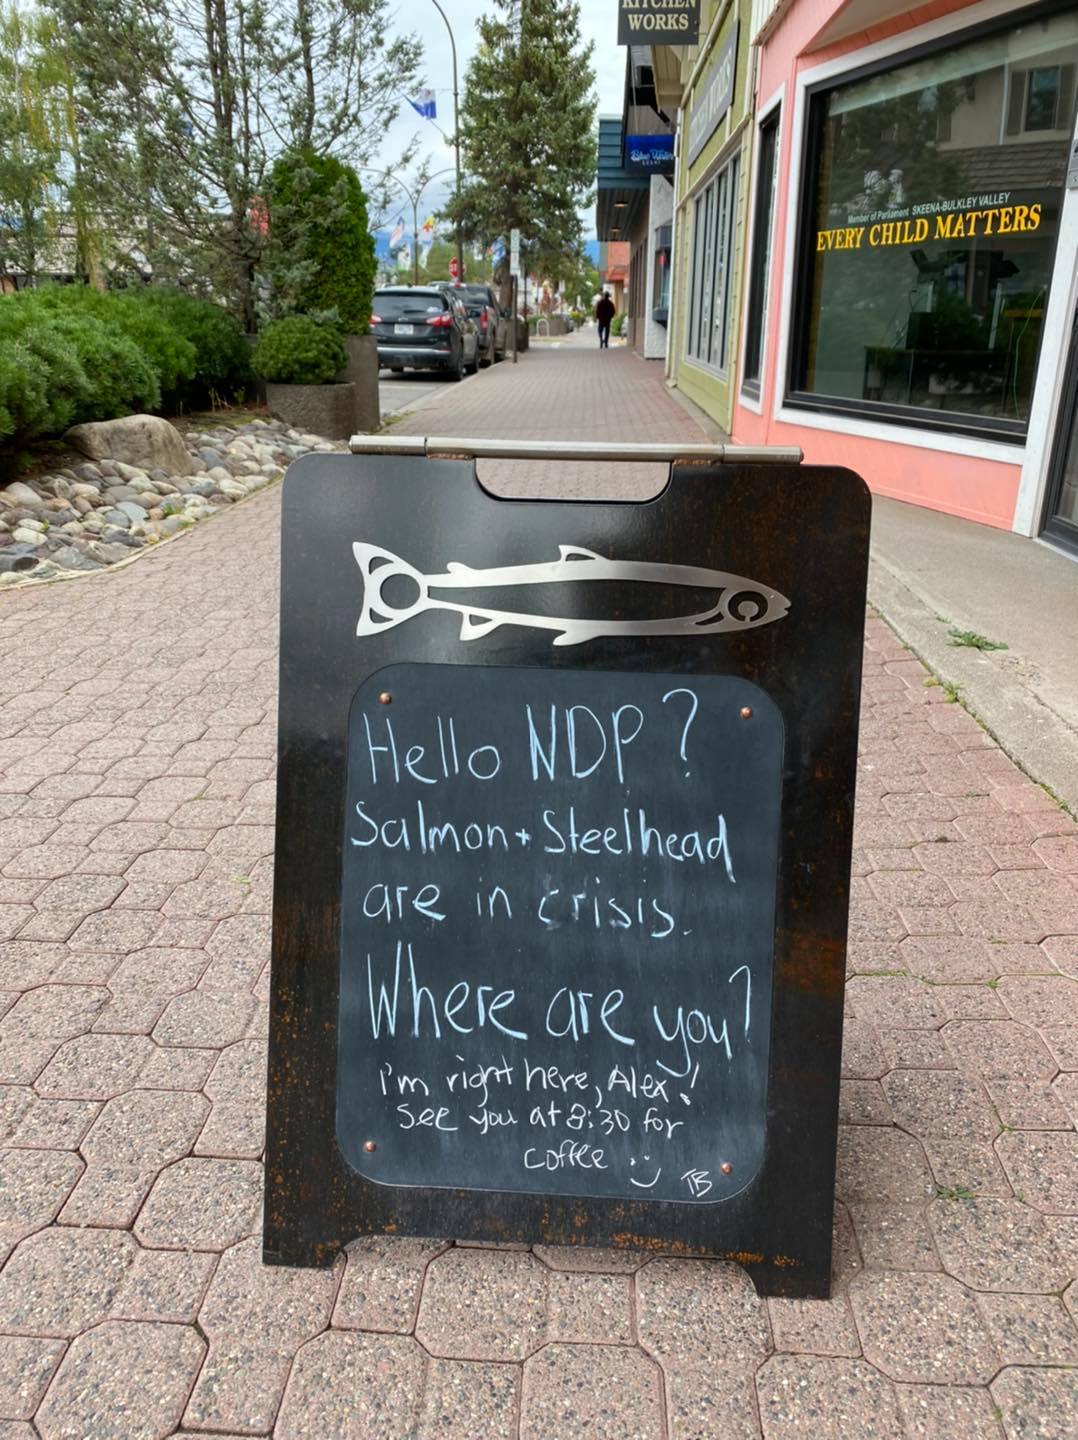 KITCHEN
WORKS
Blue Water
SUSHI
Member of Parliament SKEENA-BULKLEY VALLEY
EVERY CHILD MATTERS
Hello NDP?
Salmon + Steelhead
are in crisis.
Where are you?
I'm right here, Alex!
See you at 8:30 for
coffee
TB